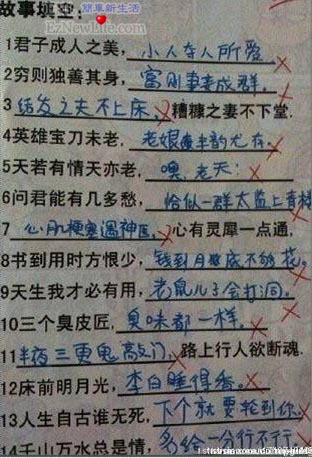 簡單新生活
EzNewLife.com
故事填空:
1君子成人之美,小人夺人所爱
2穷则独善其身,富则妻妾成群.
3结发之夫不上床、糟糠之妻不下堂.
4英雄宝刀未老.老娘丰韵尤存.
5天若有情天亦老,噢.老天:
6问君能有几多愁,恰似一群太监上青楼
7心肌梗塞遇神医,心有灵犀一点通.
8书到用时方恨少,钱到月底不够花.
9天生我才必有用,老鼠儿子会打洞.
10三个臭皮匠,臭味都一样.
11半夜三更鬼敲门,路上行人欲断魂.
12床前明月光,李白睡得香.
13人生自古谁无死,下个就要轮到你
14千山万水总是情,多给一分行不行.